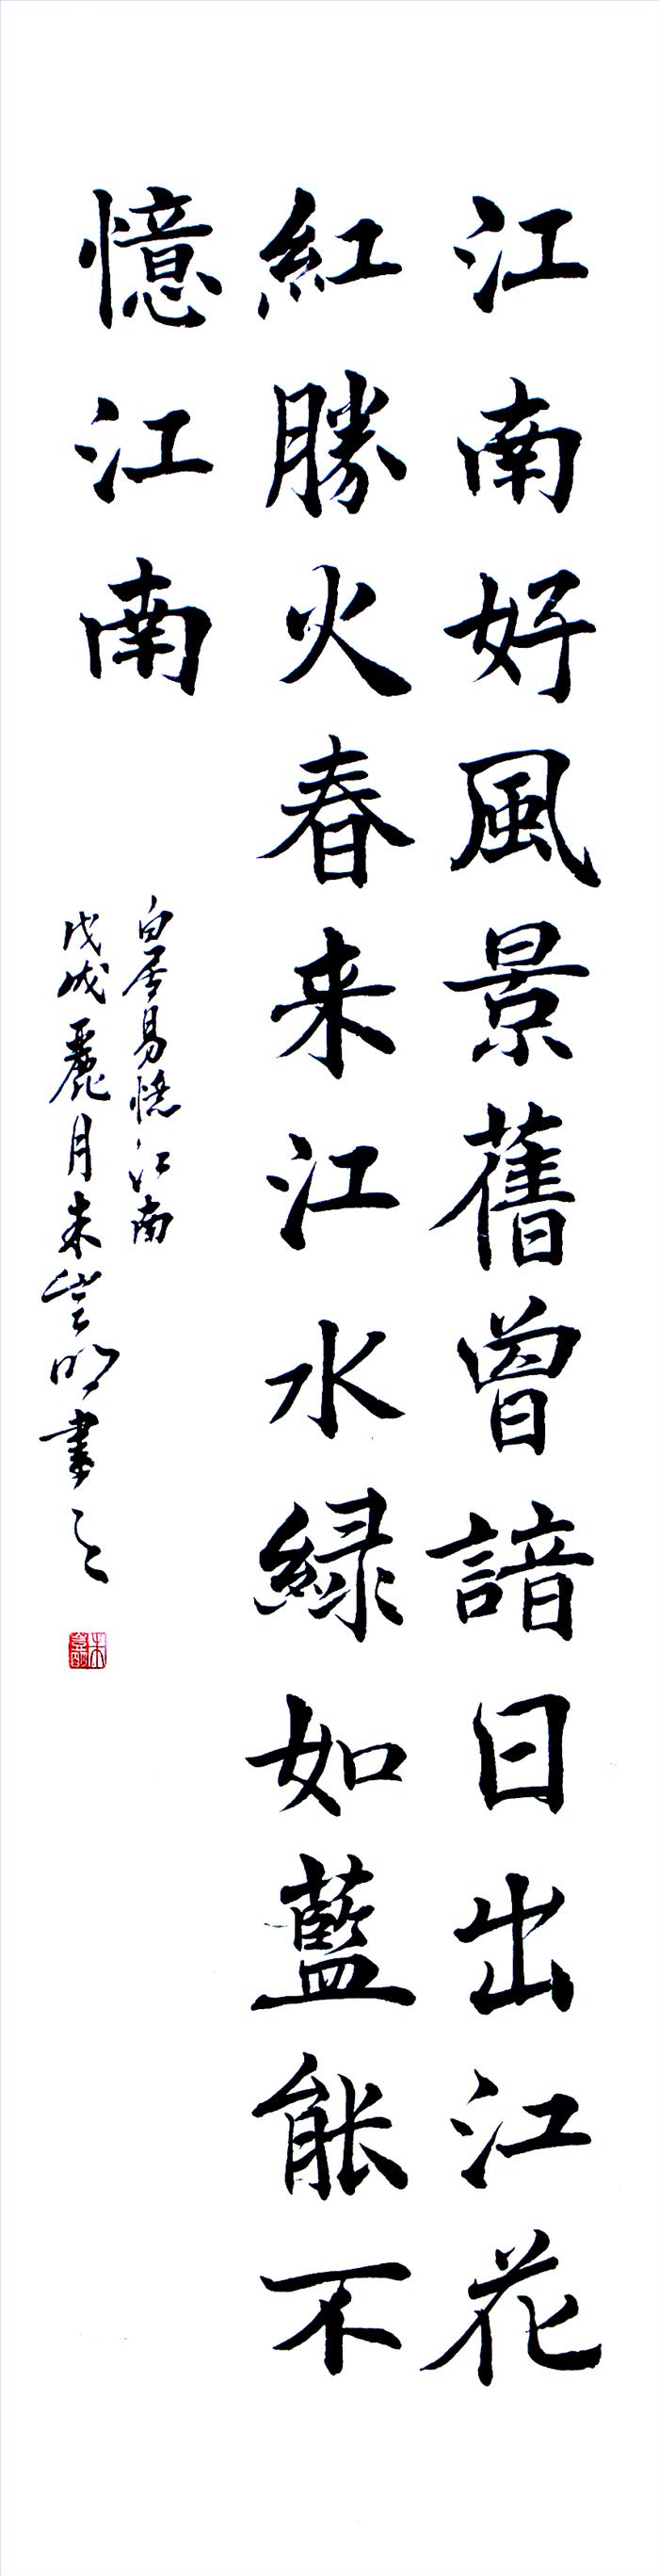 江南好風景舊曾諳日出江花
紅勝火春来江水緑如藍能不
憶江南
白居易憶江南
戊戌麗月朱崇明書之